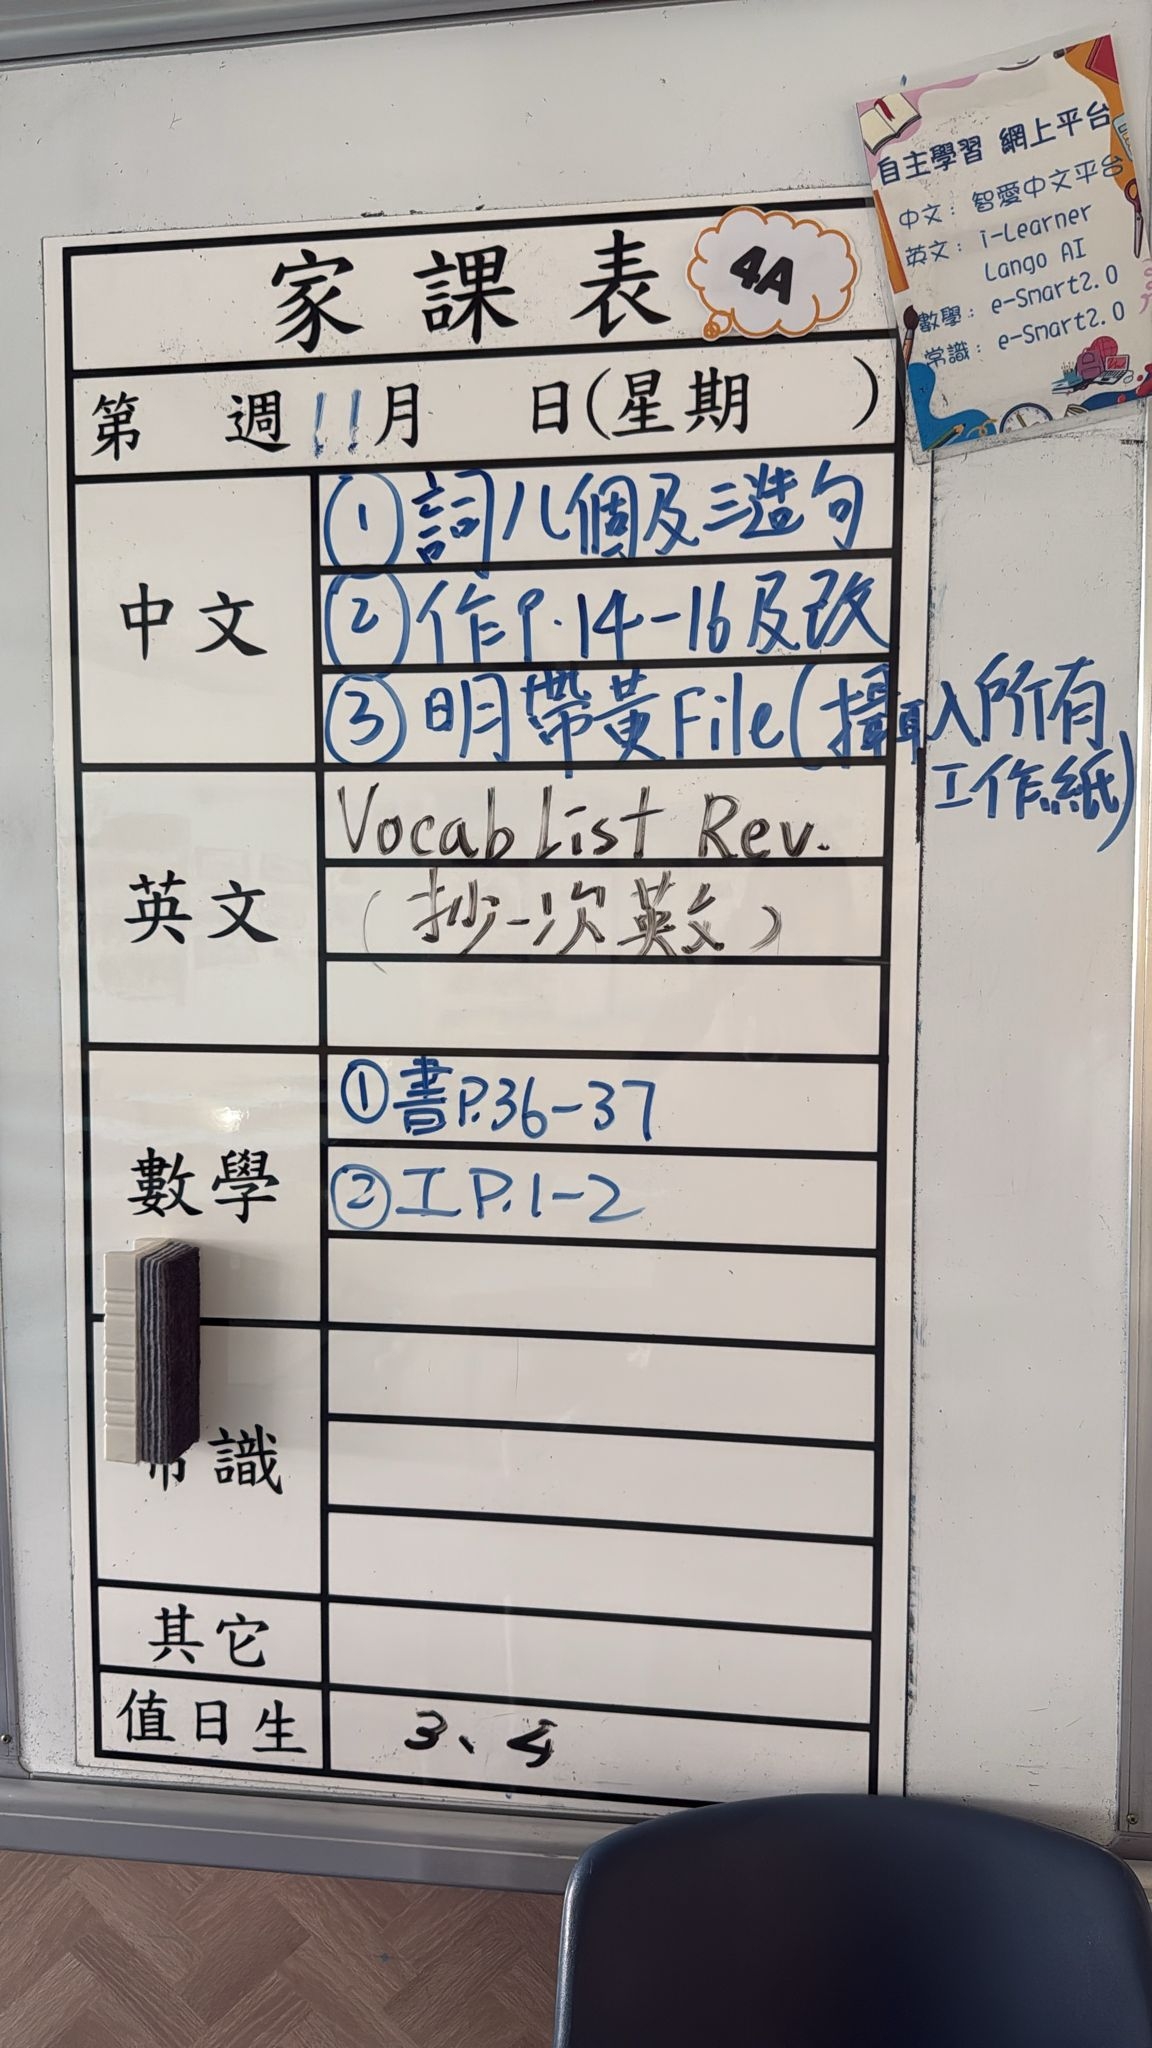 自主學習 網上平台
中文：智愛中文平台
英文：i-Learner
Lango AI
數學：e-Smart2.0
常識：e-Smart2.0
家課表
4A
第 週 11月 日(星期 )
中文
① 詞八個及三造句
② 作P.14-16及改
③ 明帶黃File(攝入所有
工作紙)
英文
Vocab List Rev.
(抄一次英文)
數學
① 書P.36-37
② 工P.1-2
常識
其它
值日生
3、4